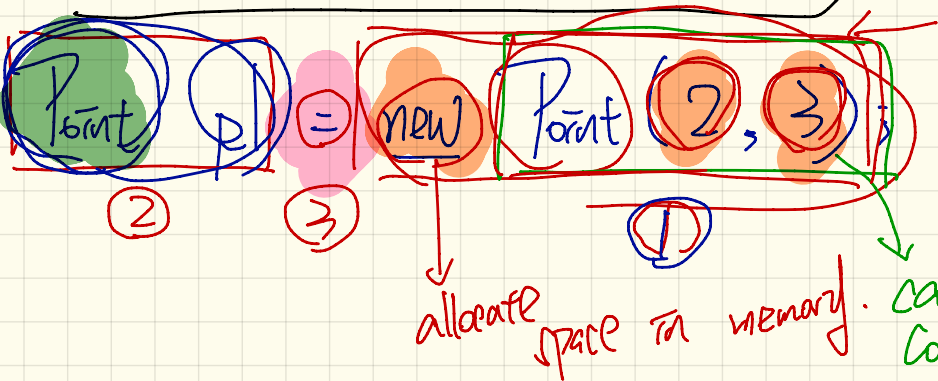 Point p1 = new Point (2, 3);
② ③ ①
allocate space in memory.